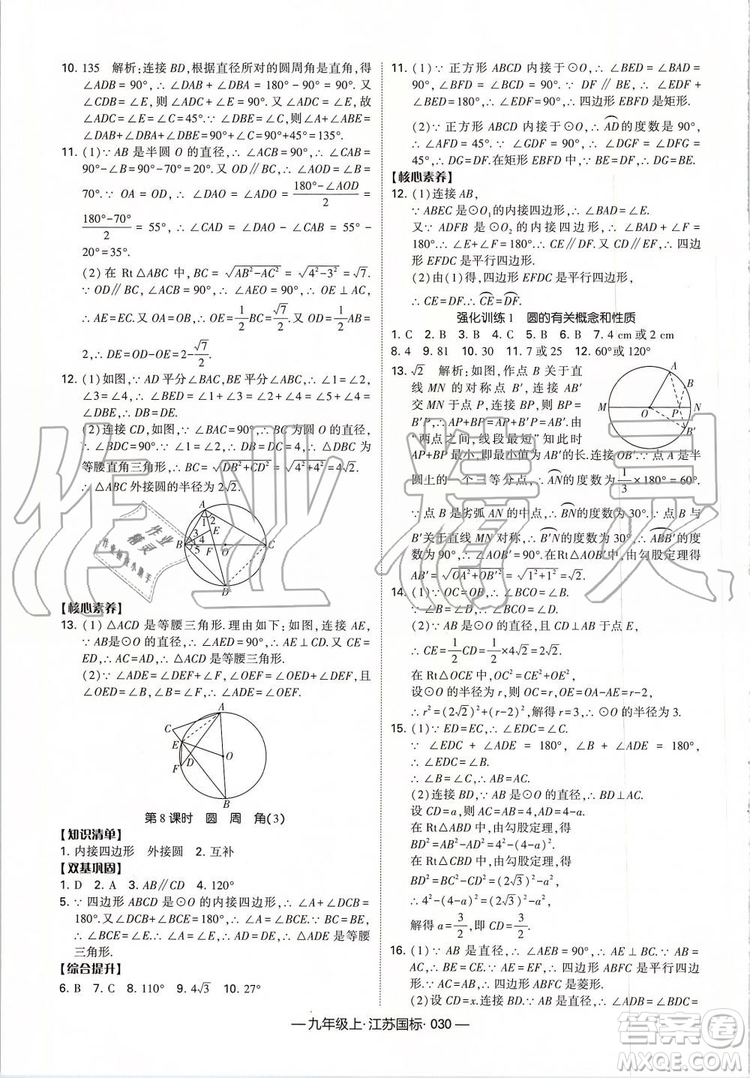 10. 135 解析:连接 BD,根据直径所对的圆周角是直角,得
∠ADB = 90°,∴ ∠DAB + ∠DBA = 180° - 90° = 90°.
又∠CDB = ∠E,则∠ADC + ∠E = 90°.又∠ADC =
∠AEC,则∠AEC + ∠E = 90°.又∠ADC = ∠E,故
∠ADC = ∠E = 45°.∵ ∠DBE = ∠C,∴ ∠ABE + ∠C =
∠DAB + ∠DBA + ∠DBE = ∠C + 90° = 45° + 90° = 135°.
11. (1)∵ AB 是半圆 O 的直径,∴ ∠ACB = 90°,∴ ∠CAB =
90° - 70° = 20°.又 OD∥BC,∴ ∠DAO = (180° - ∠AOD)/2 =
(180° - 70°)/2 = 55°,∴ ∠CAD = ∠DAO - ∠CAO = 35°.
(2)在 Rt△ABC 中,BC = √(AB² - AC²) = √(4² - 3²) = √7.
∵ OD∥BC,∴ ∠AEO = 90°,∴ OE⊥AC,∴ OE = 1/2 BC = √7/2,
∴ DE = OD - OE = 1/2 AB - 1/2 BC = 2 - √7/2.
12. (1)如图,∵ AD 平分∠BAC,BE 平分∠ABC,∴ ∠1 = ∠2,
∠3 = ∠4,∴ ∠DBE = ∠4 + ∠5 = ∠3 + ∠1 = ∠DEB,
∴ DE = DB.
(2)连接 CD,如图.∵ ∠BAC = 90°,∴ BC 为圆 O 的直径,
∴ ∠BDC = 90°.∵ ∠1 = ∠2,∴ DB = BC,∴ △DBC 为
等腰直角三角形,∴ BC = √(DB² + CD²) = √(4² + 4²) =
4√2,∴ △ABC 外接圆的半径为 2√2.
【核心素养】
13. (1)△ACD 是等腰三角形.理由:如图,连接 AE,
∵ AB是⊙O 的直径,∴ ∠AEB = 90°,∴ AE⊥CD.又 CE =
ED,∴ AC = AD,∴ △ACD 是等腰三角形.
(2)∵ ∠ADE = ∠DEF + ∠F,∠OEB = ∠OED + ∠DEF,
∠OEB = ∠B,∠B = ∠F,∴ ∠ADE = ∠OED.
第 8 课时 圆 周 角(3)
【知识清单】
1. 内接四边形 外接圆 2. 互补
【双基巩固】
1. D 2. A 3. AB∥CD 4. 120°
5. ∵ 四边形 ABCD 是⊙O 的内接四边形,∴ ∠A + ∠BCD =
180°.又∵ ∠DCE + ∠BCD = 180°,∴ ∠A = ∠DCE.∵ BC = BE,
∴ ∠DCE = ∠E,∴ ∠A = ∠E,∴ AD = DE,∴ △ADE 是等腰
三角形.
【综合提升】
6. B 7. C 8. 110° 9. 4√3 10. 27°
11. (1)∵ 正方形 ABCD 内接于⊙O,∴ ∠BED = ∠BAD =
90°,∠BFD = ∠BCD = 90°.∵ DF∥BE,∴ ∠EDF +
∠BED = 180°,∴ ∠EDF = 90°,∴ 四边形 EBFD 是矩形.
(2)∵ 正方形 ABCD 内接于⊙O,∴ AD的度数是 90°,
∴ ∠AFD = 45°.又∵ ∠GDF = 90°,∴ ∠DGF = ∠DFG =
45°,∴ DG = DF.在矩形 EBFD 中,BE = DF,∴ DG = BE.
【核心素养】
12. (1)连接 AB,
∵ ABEC 是⊙O₁的内接四边形,∴ ∠BAD = ∠E.
又∵ ADFB 是⊙O₂的内接四边形,∴ ∠BAD + ∠F =
180°,∴ ∠E + ∠F = 180°,∴ CE∥DF.又∵ CD∥EF,∴ 四边
形 EFDC 是平行四边形.
(2)由(1)得,四边形 EFDC 是平行四边形,
∴ CE = DF.∴ CE = DF.
强化训练 1 圆的有关概念和性质
1. C 2. B 3. B 4. C 5. B 6. B 7. 4 cm 或 2 cm
8. 4 9. 81 10. 30 11. 7 或 25 12. 60°或 120°
13. √2 解析:如图,作点 B 关于直
线 MN 的对称点 B′,连接 AB′
交 MN 于点 P,连接 BP,则 BP =
B′P,∴ AP + BP = AP + B′P.由
“两点之间,线段最短”知此时
AP + BP 最小,即最小值为 AB′的长.连接 OA,OB′.∵ 点 A 是半
圆上的一个三等分点,∴ AN的度数为 1/3 × 180° = 60°.
∵ 点 B 是劣弧 AN的中点,∴ BN的度数为 30°.∵ 点 B
与点 B′关于直线 MN 对称,∴ B′N的度数为 30°,∴ ABB′的
度数为 90°,∴ ∠AOB′ = 90°.在Rt△AOB′中,由勾股定理得
AB′ = √(OA² + OB′²) = √(1² + 1²) = √2,∴ AP + BP 的最小值为√2.
14. (1)∵ ∠ACD = ∠B,∠BAO = ∠B,∴ ∠ACD = ∠BAO.
(2)∵ OA 是⊙O 的半径,且 CD⊥AB 于点 E,
∴ CE = 1/2 CD = 1/2 × 4√2 = 2√2.
在Rt△OCE 中,OC² = CE² + OE²,
设⊙O 的半径为 r,则 OC = r,OE = OA - AE = r - 2,
∴ r² = (2√2)² + (r - 2)²,解得 r = 3,∴ ⊙O 的半径为 3.
15. (1)∵ ED = EC,∴ ∠EDC = ∠C.
∵ ∠EDC + ∠ADE = 180°,∠B + ∠ADE = 180°,
∴ ∠EDC = ∠B,∴ ∠B = ∠C,∴ AB = AC.
(2)连接 BD,∵ AB 为直径,∴ BD⊥AC.
设 CD = a,由(1)知 AC = AB = 4,则 AD = 4 - a,
在 Rt△ABD 中,由勾股定理,得
BD² = AB² - AD² = 4² - (4 - a)².
在 Rt△CBD 中,由勾股定理,得
BD² = BC² - CD² = (2√3)² - a².
∴ 4² - (4 - a)² = (2√3)² - a²,
解得 a = 3/2,即 CD = 3/2.
16. (1)∵ AB 是直径,∴ ∠AEB = 90°,∴ AE⊥BC.∵ AB =
AC,∴ BE = CE.∵ AE = EF,∴ 四边形 ABFC 是平行四
边形.∵ AC = AB,∴ 四边形 ABFC 是菱形.
九年级上·江苏国标·030
作业精灵
答案圈
MXQE.COM